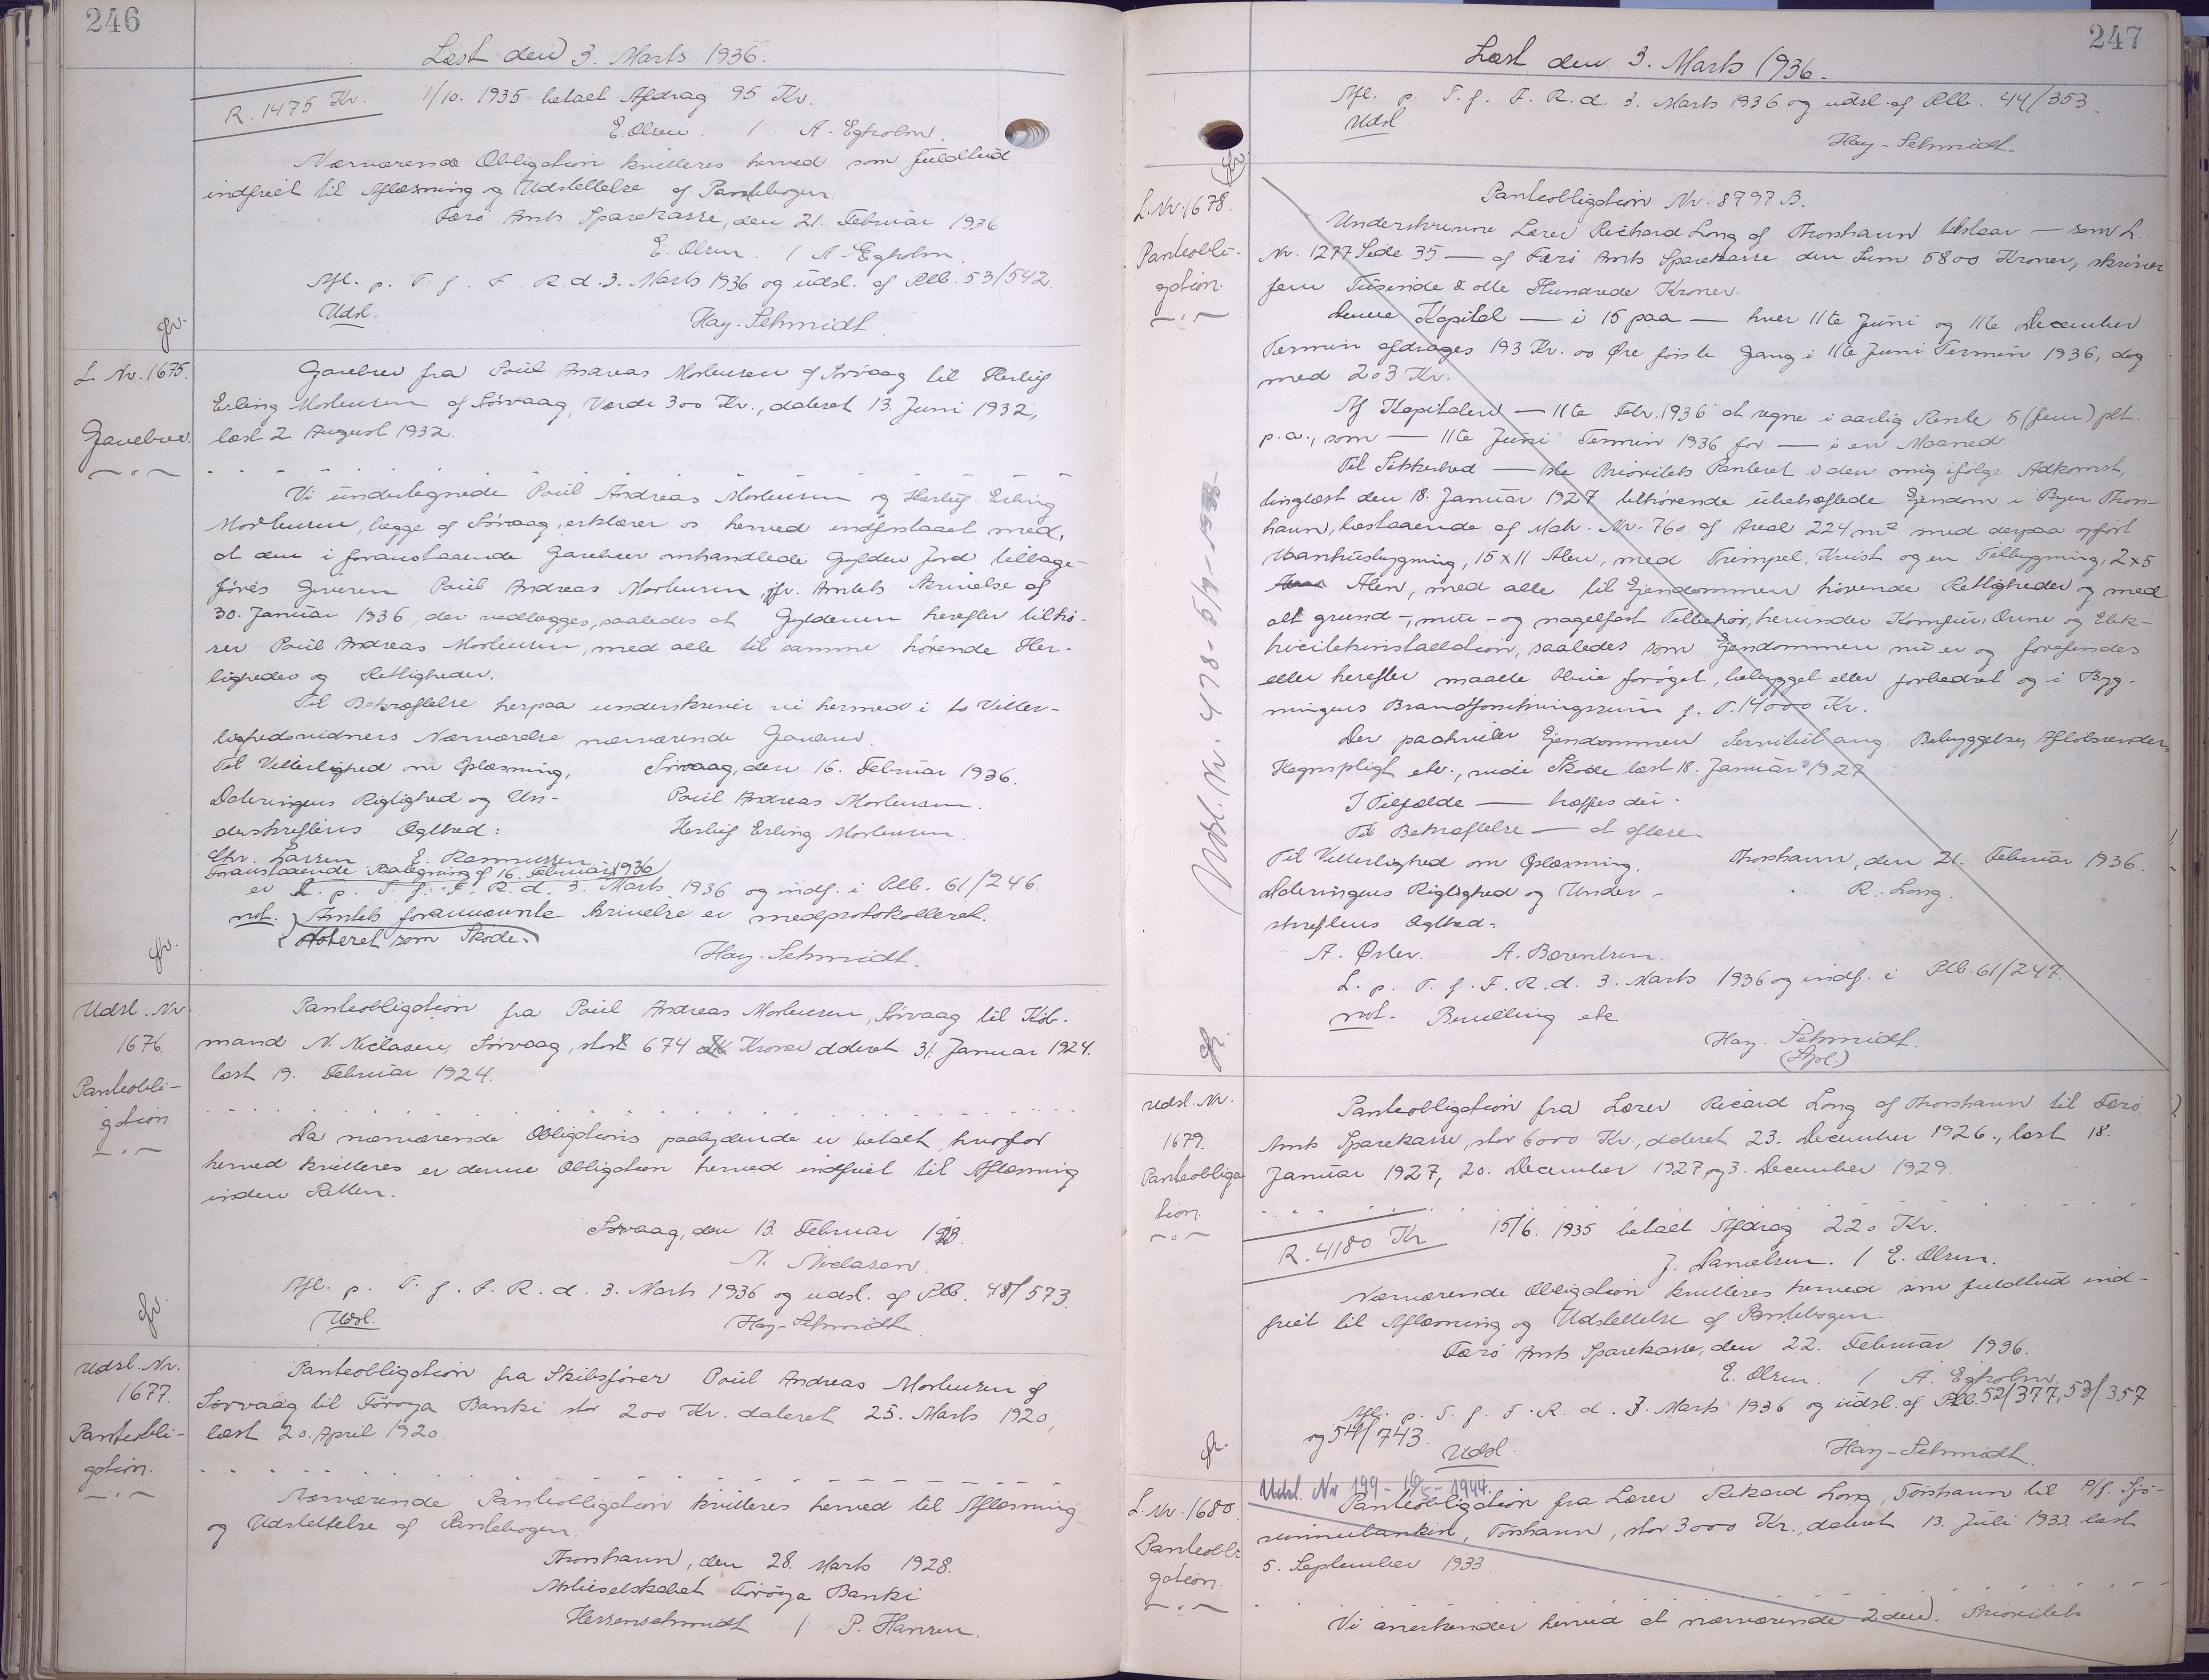 246
Læst den 3. Marts 1936.
R. 1475 Kr. 1/10. 1935 betalt Afdrag 95 Kr.
E. Olsen. / A. Egholm.
Nærværende Obligation kvitteres herved som fuldtud
indfriet til Aflæsning og Udslettelse af Pantebogen.
Færø Amts Sparekasse, den 21. Februar 1936
E. Olsen. / A. Egholm.
Afl. p. T. f. F. R. d. 3. Marts 1936 og udsl. af Plb. 53/542.
Udsl. Hay-Schmidt.
L. Nr. 1675.
Gavebrev.
Gavebrev fra Poul Andreas Mortensen af Sørvaag til Herluf
Erling Mortensen af Sørvaag, Værdi 300 Kr., dateret 13. Juni 1932,
læst 2 August 1932.
Vi undertegnede Poul Andreas Mortensen og Herluf Erling
Mortensen, begge af Sørvaag, erklærer os herved indforstaaet med,
at den i foranstaaende Gavebrev omhandlede Gylden Jord tilbage-
føres Giveren Poul Andreas Mortensen, jfr. Amtets Skrivelse af
30. Januar 1936, der vedlægges, saaledes at Gyldenen herefter tilhø-
rer Poul Andreas Mortensen, med alle til samme hørende Her-
ligheder og Rettigheder.
Til Bekræftelse herpaa underskriver vi hermed i to Vitter-
lighedsvidners Nærværelse nærværende Gavebrev.
Til Vitterlighed om Oplæsning, Sørvaag, den 16. Februar 1936.
Dateringens Rigtighed og Un- Poul Andreas Mortensen.
derskriftens Ægthed: Herluf Erling Mortensen.
Chr. Larsen E. Rasmussen
Foranstaaende Paategning af 16. Februar 1936
er L. p. T. f. F. R. d. 3. Marts 1936 og indf. i Plb. 61/246.
not. Amtets forannævnte Skrivelse er medprotokolleret.
Noteret som Skøde.
Hay-Schmidt.
Udsl. Nr.
1676.
Panteobli-
gation
Panteobligation fra Poul Andreas Mortensen, Sørvaag til Køb-
mand N. Niclasen, Sørvaag, stor 674 Kroner dateret 31. Januar 1924.
læst 19. Februar 1924.
Da nærværende Obligations paalydende er betalt, hvorfor
herved kvitteres er denne Obligation herved indfriet til Aflæsning
inden Retten.
Sørvaag, den 13. Februar
N. Niclasen.
Afl. p. T. f. F. R. d. 3. Marts 1936 og udsl. af Plb. 48/573.
Udsl. Hay-Schmidt.
Udsl. Nr.
1677.
Panteobli-
gation.
Panteobligation fra Skibsfører Poul Andreas Mortensen af
Sørvaag til Föroya Banki stor 200 Kr. dateret 25. Marts 1920,
læst 20. April 1920.
Nærværende Panteobligation kvitteres herved til Aflæsning
og Udslettelse af Pantebogen.
Thorshavn, den 28. Marts 1928.
Aktieselskabet Föroya Banki
Herrenschmidt / P. Hansen.
247
Læst den 3. Marts 1936.
Afl. p. T. f. F. R. d. 3. Marts 1936 og udsl. af Plb. 44/353.
Udsl.
Hay-Schmidt.
L. Nr. 1678.
Panteobli-
gation
Udsl. Nr. 478-5/9-1938
Panteobligation Nr. 8797 B.
Underskrevne Lærer Richard Long af Thorshavn tilstaar — som L.
Nr. 1277 Side 35 — af Færø Amts Sparekasse den Sum 5800 Kroner, skriver
fem Tusinde & otte Hundrede Kroner.
Denne Kapital — i 15 paa — hver 11te Juni og 11te December
Termin afdrages 193 Kr. 00 Øre første Gang i 11te Juni Termin 1936, dog
med 203 Kr.
Af Kapitalen — 11te Febr. 1936 at regne i aarlig Rente 5 (fem) pCt.
p.a., som — 11te Juni Termin 1936 for — i en Maaned
Til Sikkerhed — 1ste Prioritets Panteret i den mig ifølge Adkomst,
tinglæst den 18. Januar 1927 tilhørende ubehæftede Ejendom i Byen Thors-
havn, bestaaende af Matr. Nr. 760 af Areal 224 m² med derpaa opført
Vaanhusbygning, 15 x 11 Alen, med Trempel, Kvist og en Tilbygning, 2x5
Alen, med alle til Ejendommen hørende Rettigheder og med
alt grund-, mur- og nagelfast Tilbehør, herunder Komfur, Ovne og Elek-
tricitetsinstallation, saaledes som Ejendommen nu er og forefindes
eller herefter maatte blive forøget, bebygget eller forbedret og i Byg-
ningens Brandforsikringssum f. T. 14000 Kr.
Der paahviler Ejendommen Servitut ang. Bebyggelse, Afløbsrender,
Hegnspligt etc., vide Skøde læst 18. Januar 1927
I Tilfælde — træffes der.
Til Bekræftelse — at aflæse.
Til Vitterlighed om Oplæsning, Thorshavn, den 21. Februar 1936.
Dateringens Rigtighed og Under- R. Long.
skriftens Ægthed:
A. Ørlev. A. Bærentsen.
L. p. T. f. F. R. d. 3. Marts 1936 og indf. i Plb. 61/247.
not. Benulling etc
Hay-Schmidt.
(Spl.)
Udsl. Nr.
1679.
Panteobliga
tion.
Panteobligation fra Lærer Ricard Long af Thorshavn til Færø
Amts Sparekasse, stor 6000 Kr., dateret 23. December 1926., læst 18.
Januar 1927, 20. December 1927 og 3. December 1929.
R. 4180 Kr 15/6. 1935 betalt Afdrag 220 Kr.
J. Danielsen. / E. Olsen.
Nærværende Obligation kvitteres herved som fuldtud ind-
friet til Aflæsning og Udslettelse af Pantebogen.
Færø Amts Sparekasse, den 22. Februar 1936.
E. Olsen. / A. Egholm.
Afl. p. T. f. F. R. d. 3. Marts 1936 og udsl. af Plb. 52/377, 53/357
og 54/743. Udsl. Hay-Schmidt.
Udsl. Nr 199 - 16/5 - 1944.
L. Nr. 1680.
Panteobli
gation.
Panteobligation fra Lærer Rikard Long, Tórshavn til P/f. Sjó-
vinnubankin, Tórshavn, stor 3000 Kr., dateret 13. Juli 1933 læst
5. September 1933.
Vi anerkender herved at nærværende 2den Prioritets